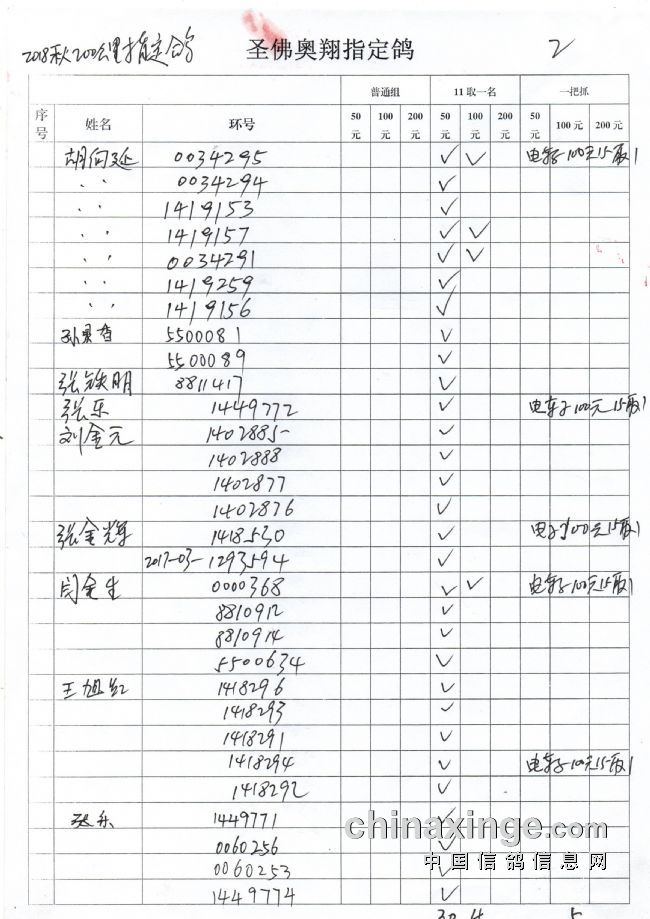 2018秋200公里指定鸽 圣佛奥翔指定鸽 2
普通组 11取一名 一把抓
序号 姓名 环号 50元 100元 200元 50元 100元 200元 50元 100元 200元
胡向延 0034295 ✓ ✓ 电车子100元15取1
〃 0034294 ✓
〃 1419153 ✓
〃 1419157 ✓ ✓
〃 0034291 ✓ ✓
〃 1419259 ✓
〃 1419156 ✓
5500081 ✓
5500089 ✓
张铁明 8811417 ✓
张乐 1449772 ✓ 电车子100元15取1
刘金元 1402885 ✓
1402888 ✓
1402877 ✓
1402876 ✓
张金辉 1418530 ✓ 电子100元15取1
2017-03-1293594 ✓
闫金生 0000368 ✓ ✓ 电车子100元15取1
8810912 ✓
8810914 ✓
5500634 ✓
王旭 1418296 ✓
1418293 ✓
1418291 ✓
1418294 ✓ 电车子100元15取1
1418292 ✓
张乐 1449771 ✓
0060256 ✓
0060253 ✓
1449774 ✓
30 4 5
chinaxinge.com
中国信鸽信息网